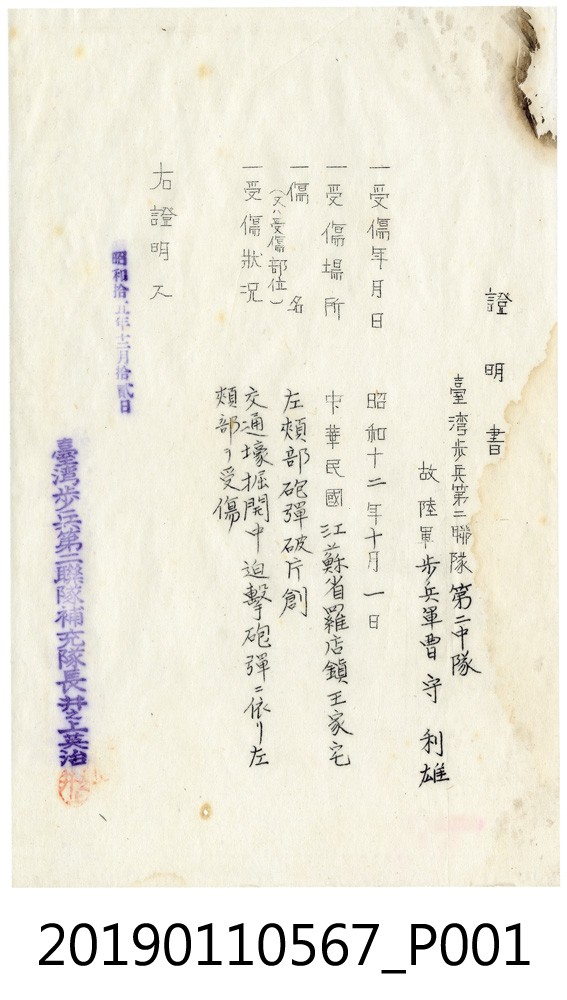 證明書
臺灣步兵第二聯隊第二中隊
故陸軍步兵軍曹 守 利雄
一受傷年月日 昭和十二年十月一日
一受傷場所 中華民國江蘇省羅店鎮王家宅
一傷名 左頰部砲彈破片創
(又ハ受傷部位)
一受傷狀況 交通壕掘開中迫擊砲彈ニ依リ左
頰部ヲ受傷
右證明ス
昭和拾五年十二月拾貳日
臺灣步兵第二聯隊補充隊長井上英治
20190110567_P001